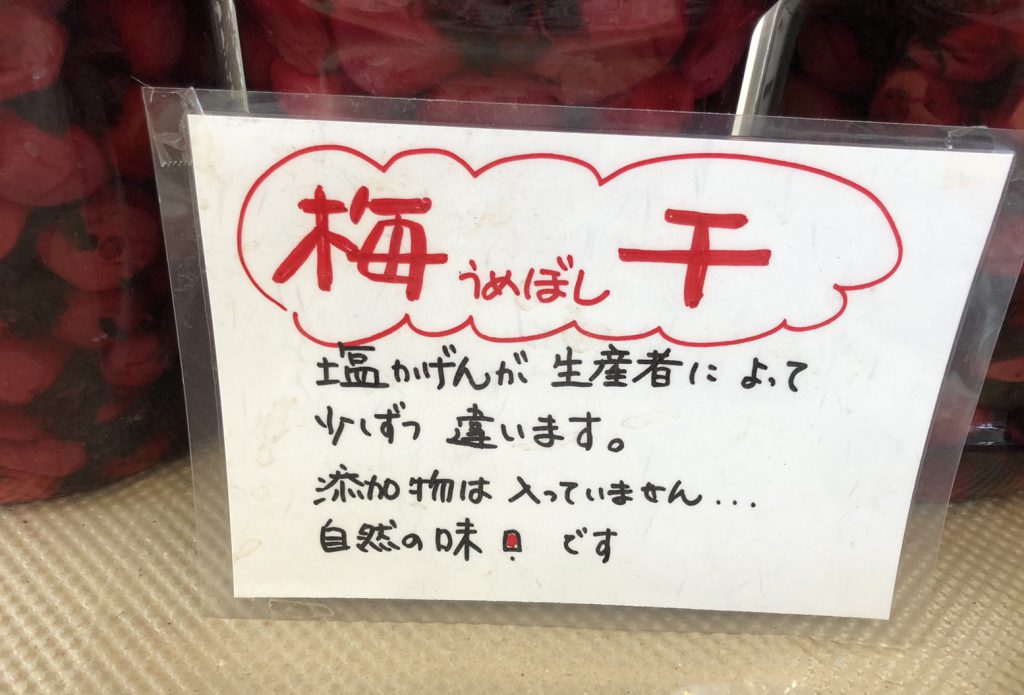 梅干
うめぼし
塩かげんが 生産者に よって
少しずつ 違います。
添加物は 入っていません...
自然の味！です